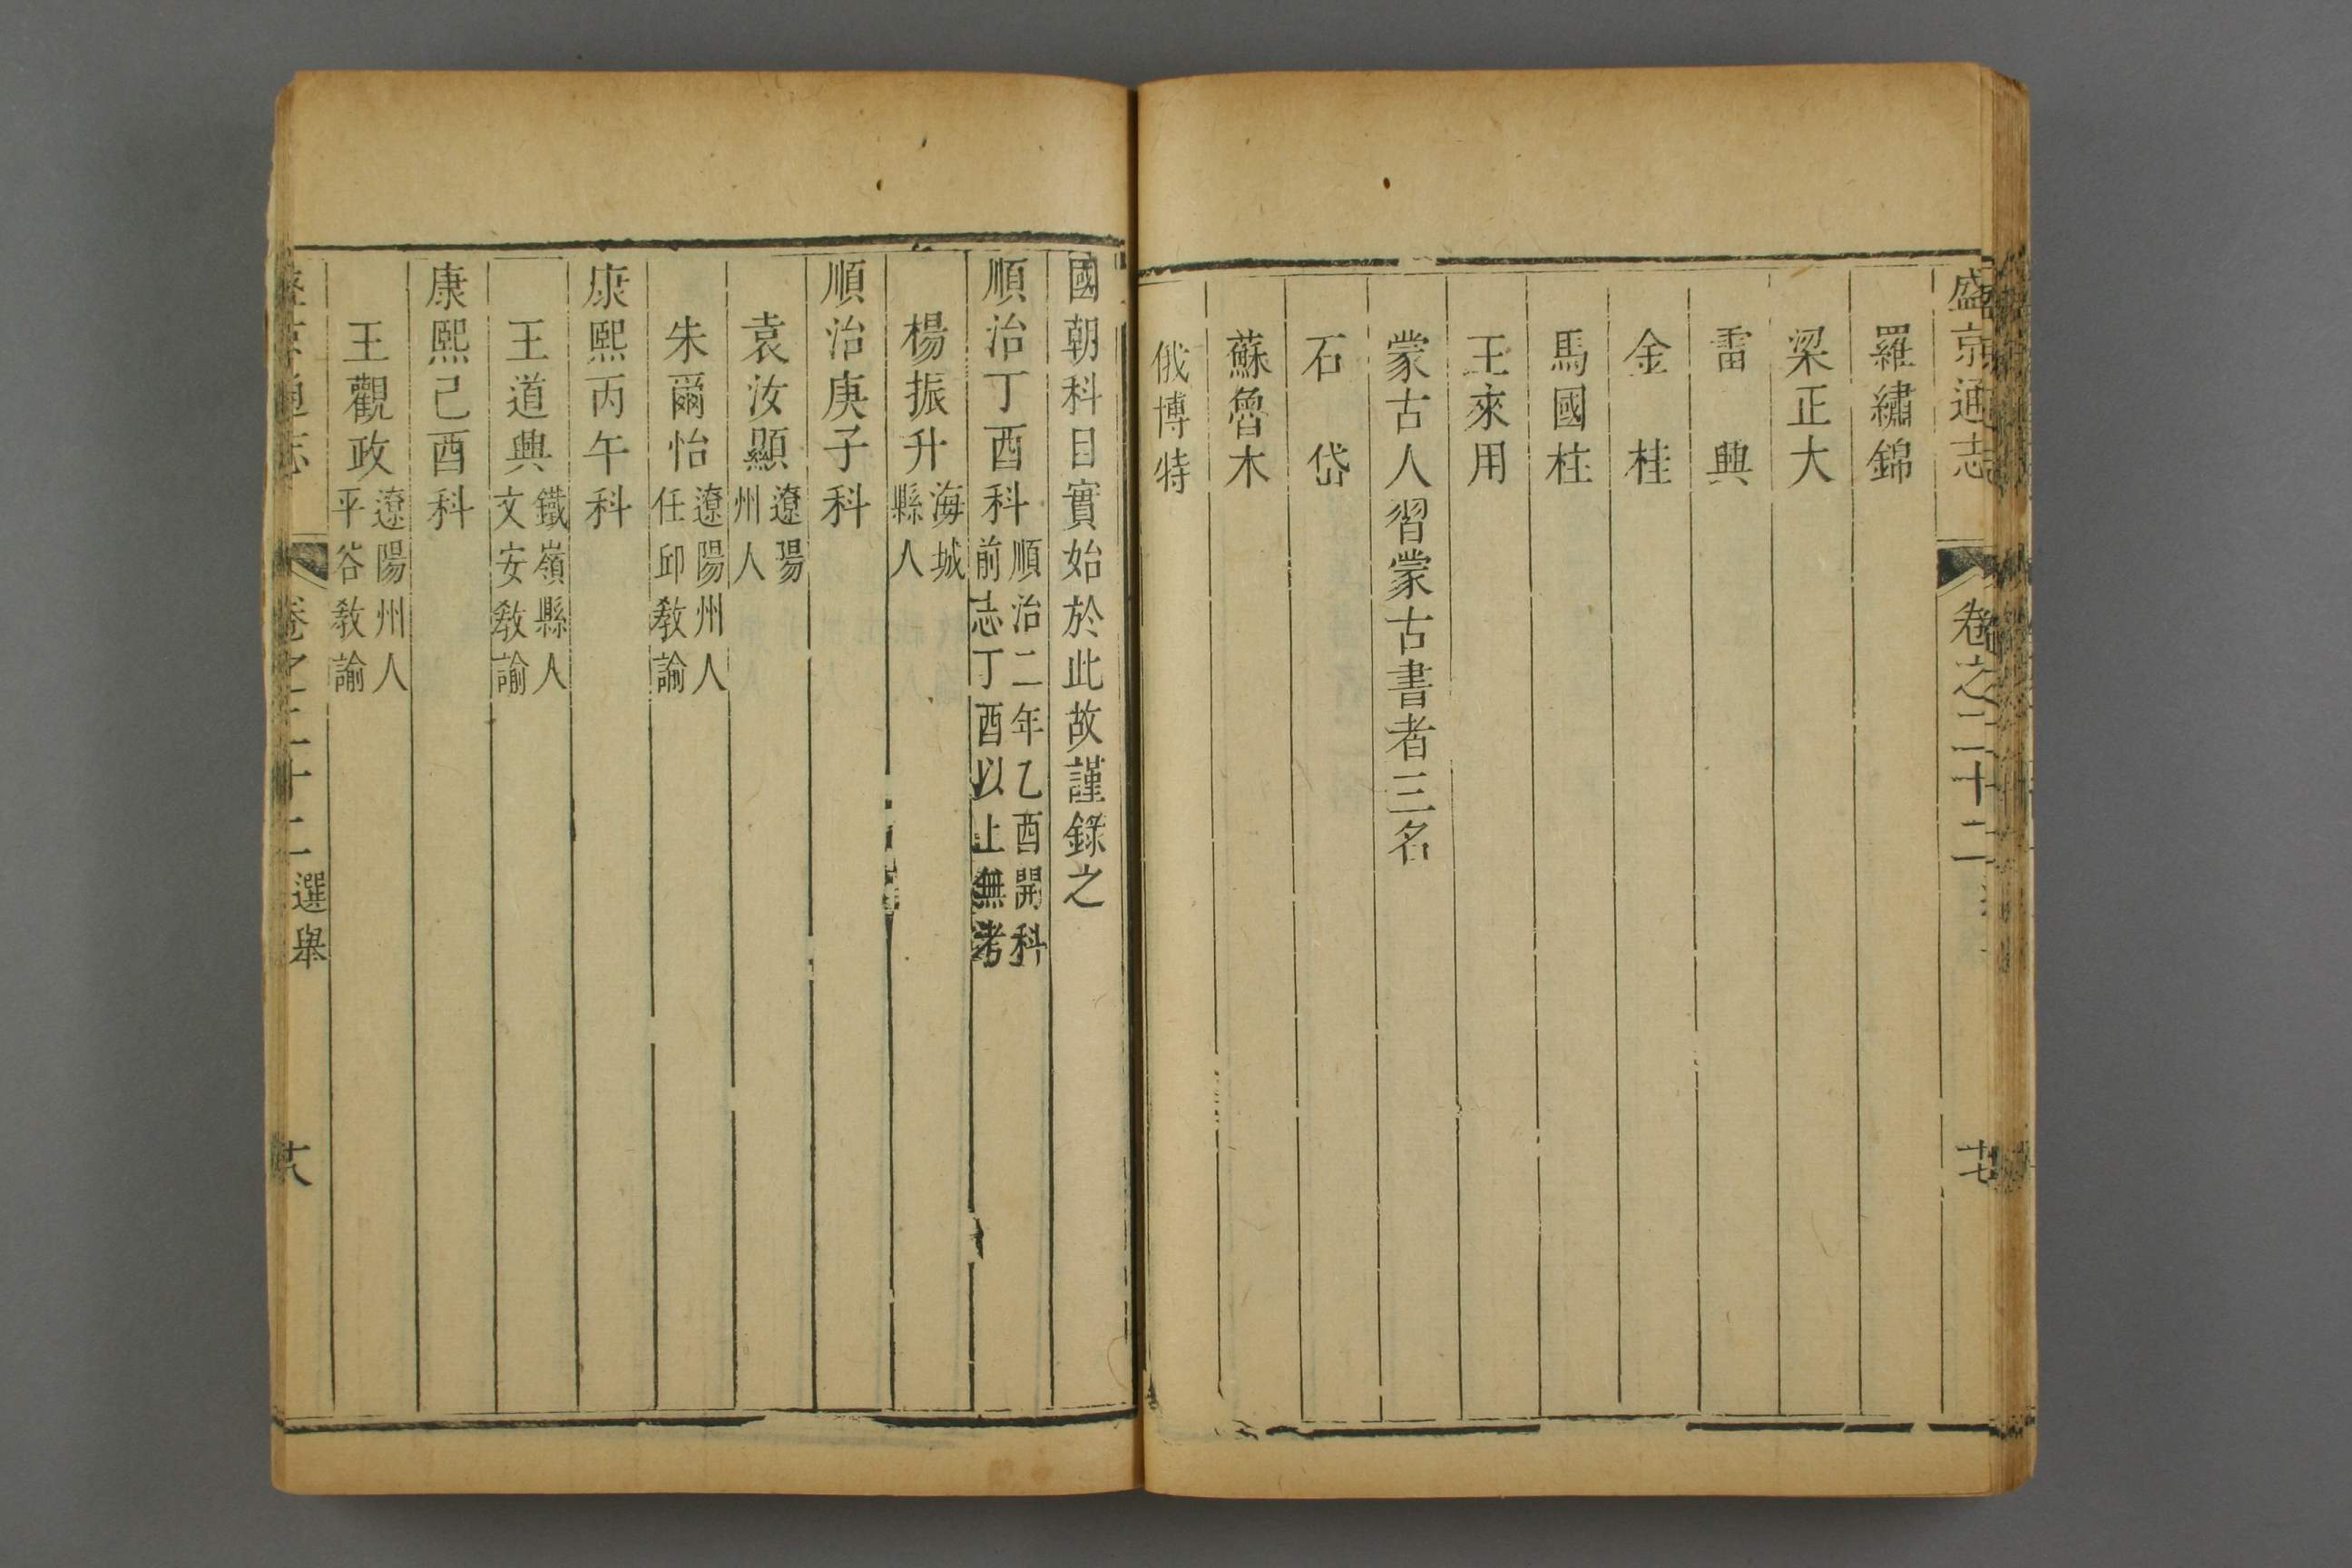 盛京通志 卷之二十二 十七
羅繡錦
梁正大
雷興
金桂
馬國柱
王來用
蒙古人習蒙古書者三名
石岱
蘇魯木
俄博特
國朝科目實始於此故謹錄之
順治丁酉科順治二年乙酉開科前志丁酉以上無考
楊振升海城縣人
順治庚子科
袁汝顯遼陽州人
朱爾怡遼陽州人任邱教諭
康熙丙午科
王道興鐵嶺縣人文安教諭
康熙己酉科
王觀政遼陽州人平谷教諭
盛京通志 卷之二十二 選舉 十八